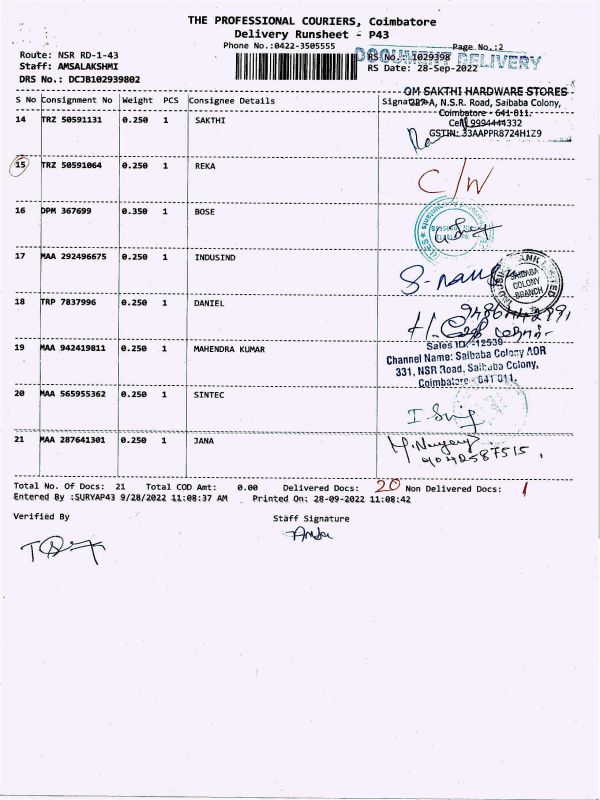 THE PROFESSIONAL COURIERS, Coimbatore
Delivery Runsheet - P43
Phone No.:0422-3505555
Page No.:2
DOCUMENT DELIVERY
Route: NSR RD-1-43
RS No.: 1029398
Staff: AMSALAKSHMI
RS Date: 28-Sep-2022
DRS No.: DCJB102939802
OM SAKTHI HARDWARE STORES
S No Consignment No Weight PCS Consignee Details
227-A, N.S.R. Road, Saibaba Colony,
Coimbatore - 641 011.
14 TRZ 50591131 0.250 1 SAKTHI
Cell 9994444332
GSTIN: 33AAPPR8724H1Z9
15 TRZ 50591064 0.250 1 REKA C/W
16 DPM 367699 0.350 1 BOSE
17 MAA 292496675 0.250 1 INDUSIND
SAIBABA
COLONY
BRANCH
18 TRP 7837996 0.250 1 DANIEL
19 MAA 942419811 0.250 1 MAHENDRA KUMAR
Sales ID:-12539
Channel Name: Saibaba Colony AOR
331, NSR Road, Saibaba Colony,
Coimbatore - 641 011.
20 MAA 565955362 0.250 1 SINTEC
21 MAA 287641301 0.250 1 JANA
9042587515.
Total No. Of Docs: 21 Total COD Amt: 0.00 Delivered Docs: 20 Non Delivered Docs: 1
Entered By :SURYAP43 9/28/2022 11:08:37 AM Printed On: 28-09-2022 11:08:42
Verified By
Staff Signature